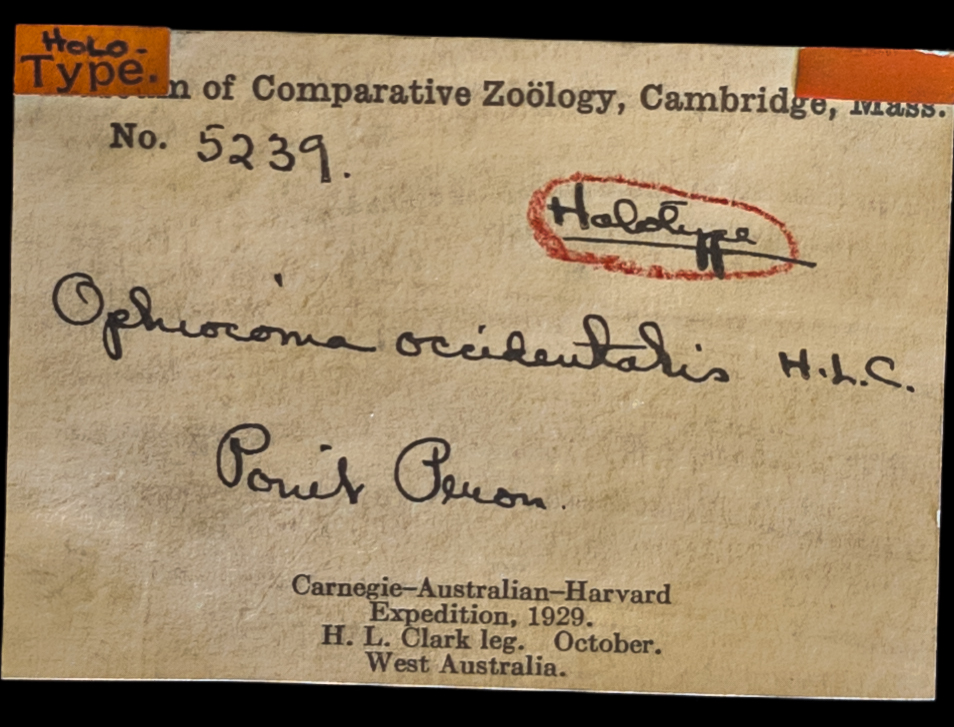 Holo-
Type.
of Comparative Zoölogy, Cambridge, Mass.
No. 5239.
Holotype
Ophiocoma occidentalis H.L.C.
Point Peron.
Carnegie–Australian–Harvard
Expedition, 1929.
H. L. Clark leg. October.
West Australia.